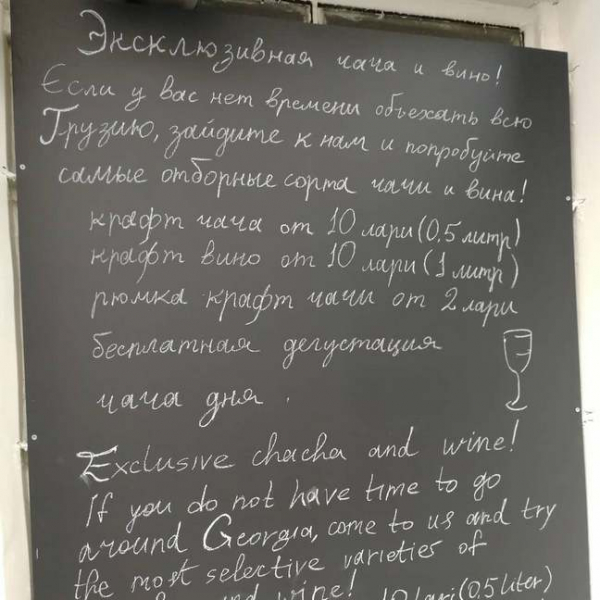 Эксклюзивная чача и вино!
Если у вас нет времени объехать всю
Грузию, зайдите к нам и попробуйте
самые отборные сорта чачи и вина!
крафт чача от 10 лари (0,5 литр)
крафт вино от 10 лари (1 литр)
рюмка крафт чачи от 2 лари
бесплатная дегустация
чача дня .
Exclusive chacha and wine!
If you do not have time to go
around Georgia, come to us and try
the most selective varieties of
and wine!
10 lari (0,5 liter)